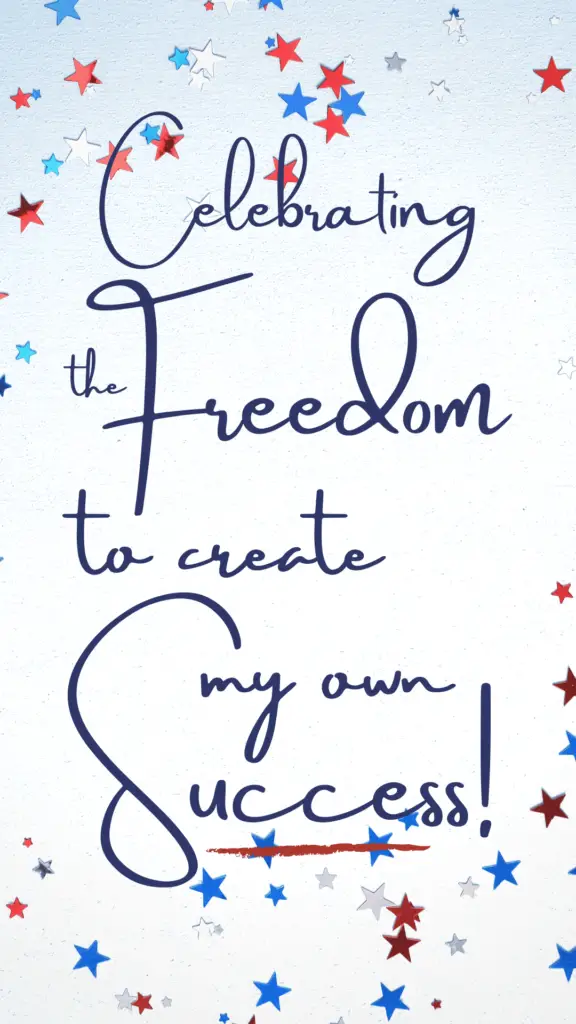 Celebrating
the Freedom
to create
my own
Success!